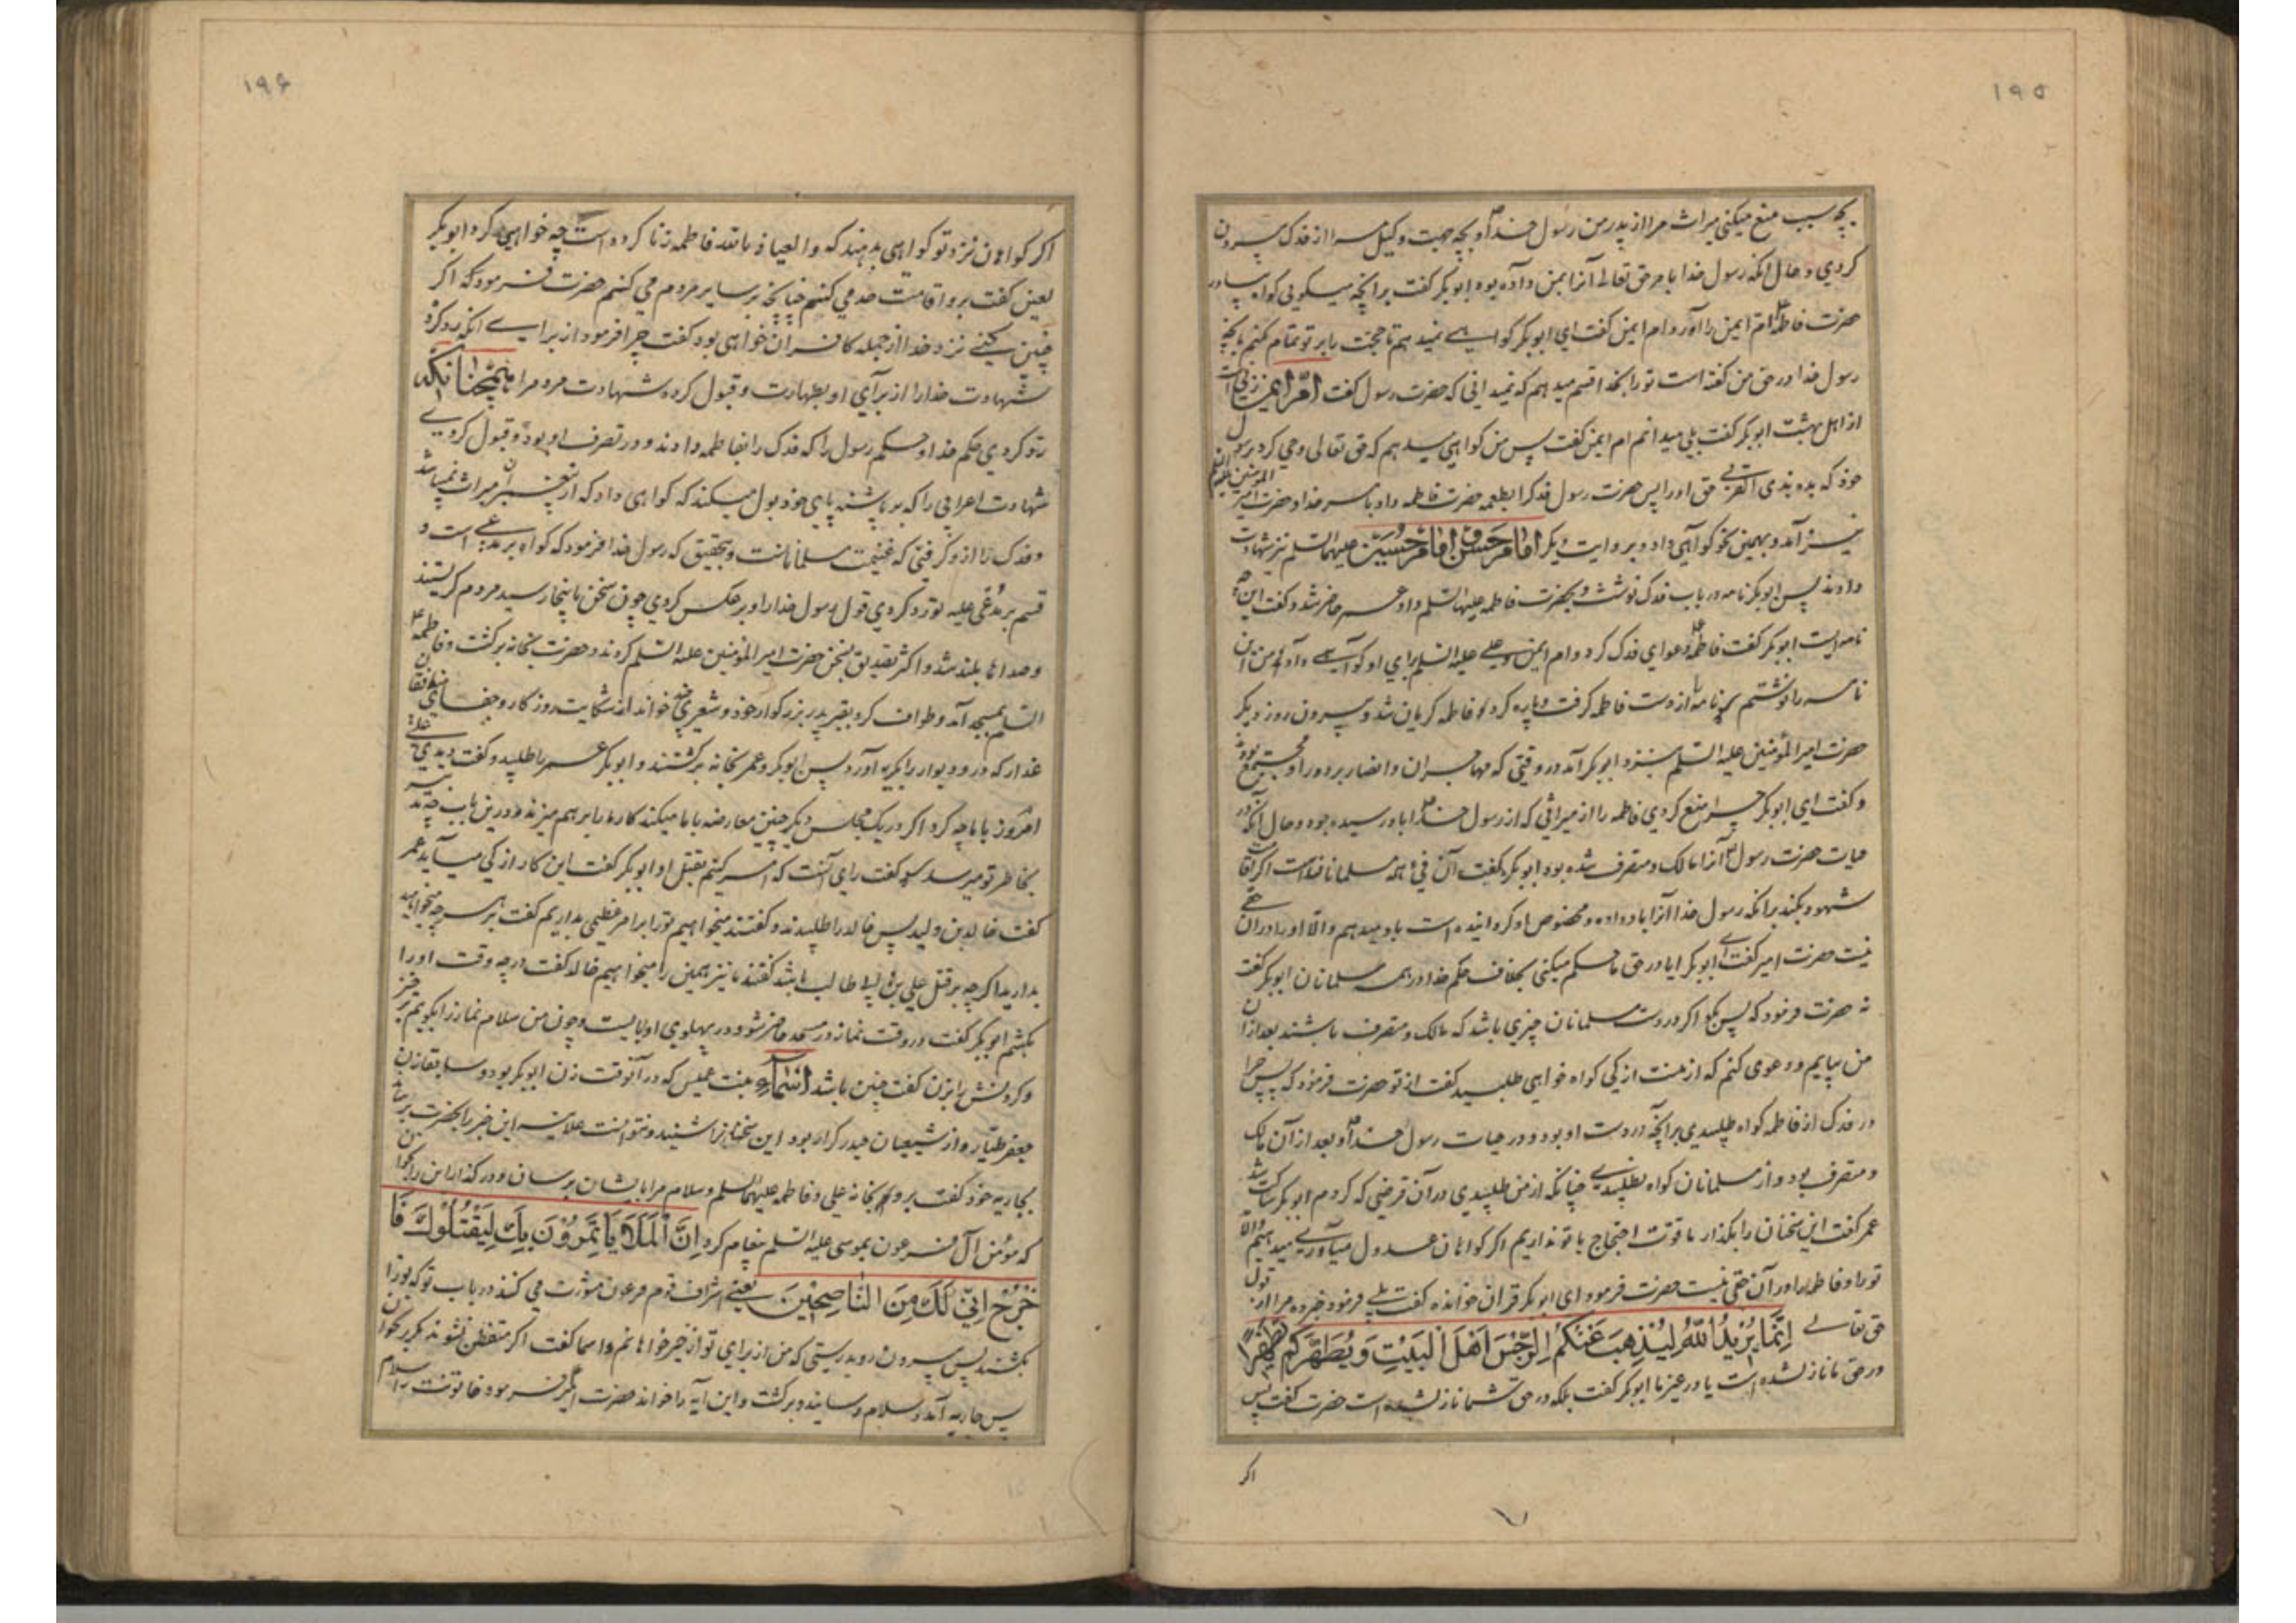 ١٩٥
بچه سبب منع میکنی میراث مرا از پدر من رسول خدا و بچه جهت وکیل مرا از فدک بیرون
کردی و حال انکه رسول خدا بامر حق تعالی آنرا بمن داده بود ابوبکر گفت برانچه میگویی کواه بیاور
حضرت فاطمه ام ایمن را آورد ام ایمن گفت ای ابوبکر کواهی نمیدهم تا حجت را بر تو تمام کنم بانچه
رسول خدا در حق من گفته است ترا بخدا قسم میدهم که نمیدانی که حضرت رسول گفت ام ایمن زنی است
از اهل بهشت ابوبکر گفت بلی میدانم ام ایمن گفت پس من کواهی میدهم که حق تعالی وحی کرد برسول
خود که بده بذی القربی حق او را پس حضرت رسول فدک را بطعمه حضرت فاطمه داد بامر خدا و حضرت امیر المومنین علیه السلم
نیز آمد و بهمین نحو کواهی داد و بروایت دیکر امام حسن و امام حسین علیهما السلم نیز شهادت
دادند پس ابوبکر نامه در باب فدک نوشت و بحضرت فاطمه علیها السلم داد عمر حاضر شد و گفت این چه
نامه ایست ابوبکر گفت فاطمه دعوای فدک کرد و ام ایمن و علی علیه السلم برای او کواهی دادند من این
نامه را نوشتم عمر نامه را از دست فاطمه کرفت و پاره کرد فاطمه کریان شد و بیرون روز دیکر
حضرت امیر المؤمنین علیه السلم بنزد ابوبکر آمد در وقتی که مهاجران و انصار بر دور او مجتمع بودند
و گفت ای ابوبکر چرا منع کردی فاطمه را از میراثی که از رسول خدا باو رسیده بود و حال آنکه در
حیات حضرت رسول آنرا مالک و متصرف شده بود ابوبکر گفت آن فئ همه مسلمانانست اکر اقامت
شهود بکند برانکه رسول خدا آنرا باو داده و مخصوص او کردانیده است باو میدهم و الا او را در ان حقی
نیست حضرت امیر گفت ای ابوبکر ایا در حق ما حکم میکنی بخلاف حکم خدا در همه مسلمانان ابوبکر گفت
نه حضرت فرمود که پس بکو اکر در دست مسلمانان چیزی باشد که مالک و متصرف باشند بعد از ان
من بیایم و دعوی کنم که از منست از کی کواه خواهی طلبید گفت از تو حضرت فرمود که پس چرا
در فدک از فاطمه کواه طلبیدی برانچه در دست او بود و در حیات رسول خدا و بعد از آن مالک
و متصرف بود و از مسلمانان کواه نطلبیدی چنانکه از من طلبیدی در آن فرضی که کردم ابوبکر ساکت شد
عمر گفت این سخنان را بکذار ما قوت احتجاج با تو نداریم اکر کواهان عدول میآوری میدهیم والا
تو را و فاطمه را در آن حقی نیست حضرت فرمود ای ابوبکر قران خوانده گفت بلی فرمود خبر ده مرا از قول
حق تعالی اِنَّما یُریدُ اللّهُ لِیُذهِبَ عَنکُمُ الرِّجسَ اَهلَ البَیتِ وَ یُطَهِّرَکُم تَطهیرًا
در حق ما نازل شده است یا در غیر ما ابوبکر گفت بلکه در حق شما نازل شده است حضرت گفت پس
اکر
١٩۶
اکر کواهان نزد تو کواهی بدهند که والعیاذ بالله فاطمه زنا کرده است چه خواهی کرد ابوبکر
لعین گفت بر او اقامت حد می کنم چنانچه بر سایر مردم می کنم حضرت فرمود که اکر
چنین کنی نزد خدا از جمله کافران خواهی بود گفت چرا فرمود از برای انکه رد کردهٔ
شهادت خدا را از برای او بطهارت و قبول کرده شهادت مردم را همچنانکه
رد کردی حکم خدا و حکم رسول را که فدک را بفاطمه دادند و در تصرف او بود و قبول کردی
شهادت اعرابی را که بر پاشنه پای خود بول میکند که کواهی داد که از پیغمبران میراث نمیباشد
و فدک را از او کرفتی که غنیمت مسلمانانست و بتحقیق که رسول خدا فرمود که کواه بر مدعی است و
قسم بر مدعی علیه تو رد کردی قول رسول خدا را و بر عکس کردی چون سخن باینجا رسید مردم کریستند
و صداها بلند شد و اکثر تصدیق سخن حضرت امیر المؤمنین علیه السلم کردند و حضرت بخانه برکشت و فاطمه
السلم بمسجد آمد و طواف کرد بقبر پدر بزرکوار خود و شعری چند خواند از شکایت روزکار و جفای منافقان
غدار که در و دیوار را بکریه آورد پس ابوبکر و عمر بخانه برکشتند و ابوبکر عمر را طلبید و گفت دیدی علی
امروز با ما چه کرد اکر در یک مجلس دیکر چنین معارضه با ما میکند کار ما را برهم میزند در این باب چه تدبیر
بخاطر تو میرسد عمر گفت رای آنست که امر کنیم بقتل او ابوبکر گفت این کار از کی میآید عمر
گفت خالد بن ولید پس خالد را طلبیدند و گفتند میخواهیم تو را بر امر عظیمی بداریم گفت بر هر چه میخواهید
بدارید اکر چه بر قتل علی بن ابی طالب باشد گفتند ما نیز همین را میخواهیم خالد گفت در چه وقت او را
بکشم ابوبکر گفت در وقت نماز در مسجد حاضر شو و در پهلوی او بایست و چون من سلام نماز را بکویم برخیز
و کردنش را بزن گفت چنین باشد اسماء بنت عمیس که در آنوقت زن ابوبکر بود و سابقا زن
جعفر طیار و از شیعیان حیدر کرار بود این سخنانرا شنید و نتوانست علانیه این خبر را بحضرت برساند
بجاریه خود گفت برو بخانه علی و فاطمه علیهما السلم و سلام مرا بایشان برسان و در کذار این را بخوان
که مؤمن ال فرعون بموسی علیه السلم پیغام کرد اِنَّ المَلَاَ یَاتَمِرُونَ بِکَ لِیَقتُلُوکَ فَا
خرُج اِنّی لَکَ مِنَ النّاصِحینَ یعنی اشراف قوم فرعون مشورت می کنند در باب تو که تو را
بکشند پس بیرون رو بدرستی که من از برای تو از خیرخواهانم و اسما گفت اکر متفطن نشوند مکرر بخوان
پس جاریه آمد و سلام رسانید و برکشت و این آیه را خواند حضرت امیر فرمود خاتونت را سلام